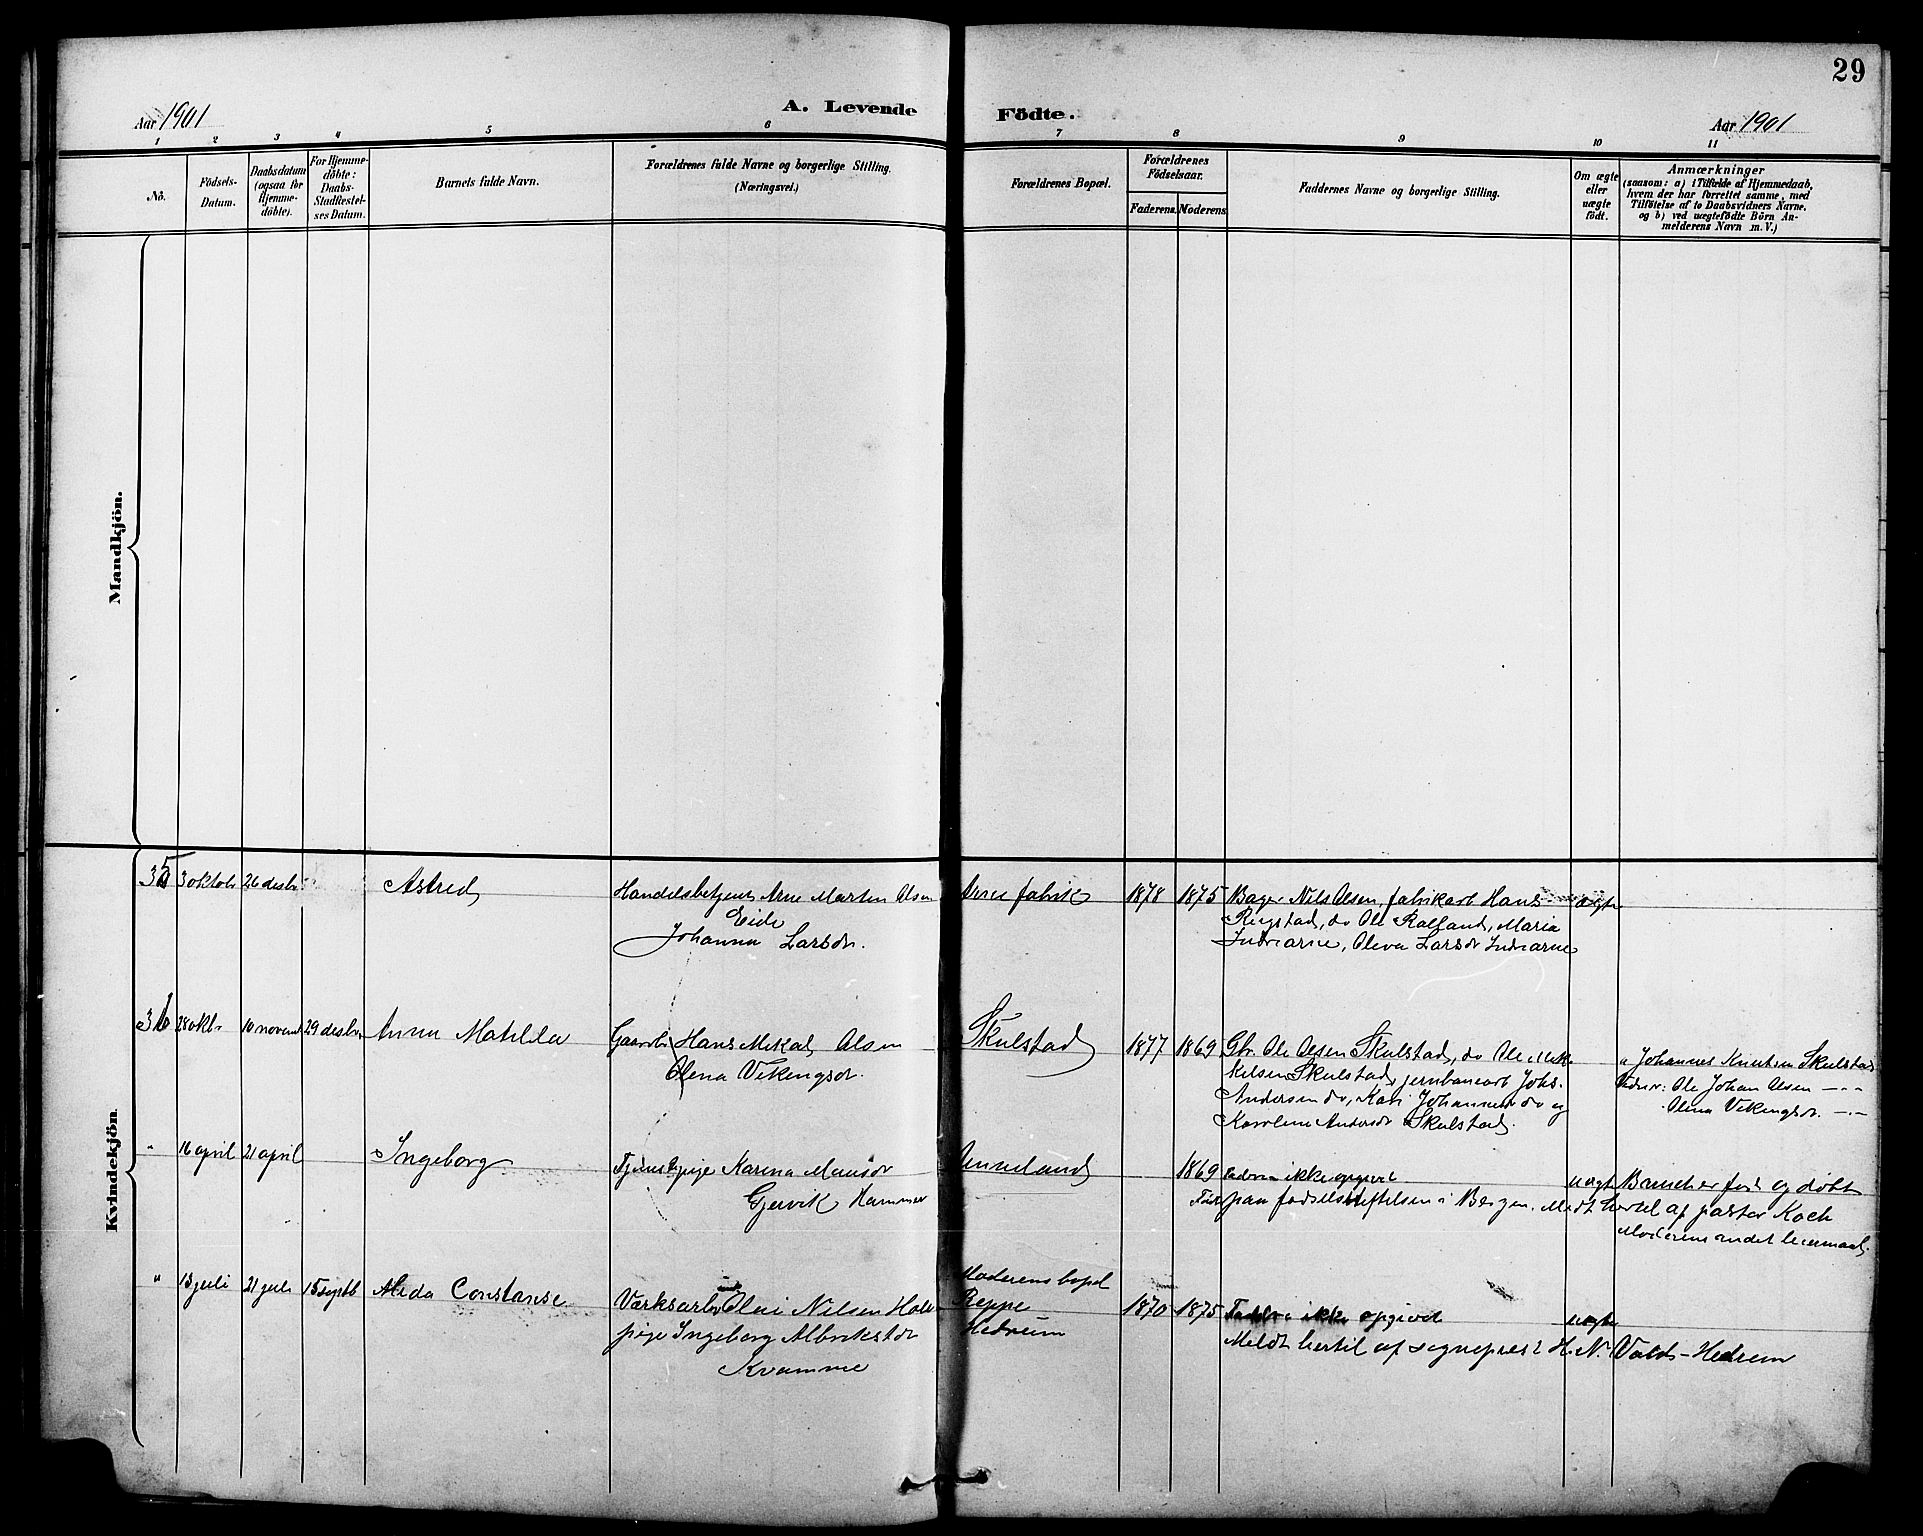 29
Aar 1901
A. Levende Födte.
Aar 1901
1 2 3 4 5 6 7 8 9 10 11
No.
Födsels-Datum.
Daabsdatum (ogsaa for Hjemme-döbte).
For Hjemme-döbte: Daabs-Stadfæstel-ses Datum.
Barnets fulde Navn.
Forældrenes fulde Navne og borgerlige Stilling.
(Næringsvei.)
Forældrenes Bopæl.
Forældrenes Födselsaar.
Faderens. Moderens.
Faddernes Navne og borgerlige Stilling.
Om ægte eller uægte födt.
Anmærkninger
(saasom: a) i Tilfælde af Hjemmedaab,
hvem der har forrettet samme, med
Tilföielse af to Daabsvidners Navne.
og b) ved uægtefödte Börn An-
melderens Navn m. V.)
Mandkjön.
Kvindekjön.
35 3 oktob 26 desbr Astrid Handelsbetjent Arne Martin Olsen Arne fabrik 1878 1875 Bager Nils Olsen, fabrikarb Hans ægte
Eide Rugstad, do Ole Ralland, Maria
Johanna Larsdr. Indrearne, Oleva Larsdr Indrearne
36 28 okt. 10 novemb 29 desbr Anna Matilda Gaardbr Hans Mikal Olsen Skulstad 1877 1869 Gbr. Ole Olsen Skulstad, do Ole Mik- a Johannes Knutsen Skulstad
Olena Vikingsdr. kelsen Skulstad, jernbanearb Johs. Vidner: Ole Johan Olsen -"-
Andersen do, Kari Johannesdr do og Olena Vikingsdr. -"-
Karoline Andersdr Skulstad.
" 16 april 21 april Ingeborg Tjenestepige Karina Monsdr Unneland 1869 Faddere ikke opgivet uægte Barnet er født og døbt
Gjervik Hammer Født paa fødselsstiftelsen i Bergen. Meldt hertil af pastor Koch
Moderens andet leiermaal.
" 13 juli 21 juli 15 septb Alida Constanse Moderens bopel
Værksarb Olai Nilsen Reppe 1870 1875 Faddere ikke opgivet uægte
pige Ingeborg Albrektsdr Hedrum Meldt hertil af sognepresd H. N. Valds-Hedrem
Kvamme